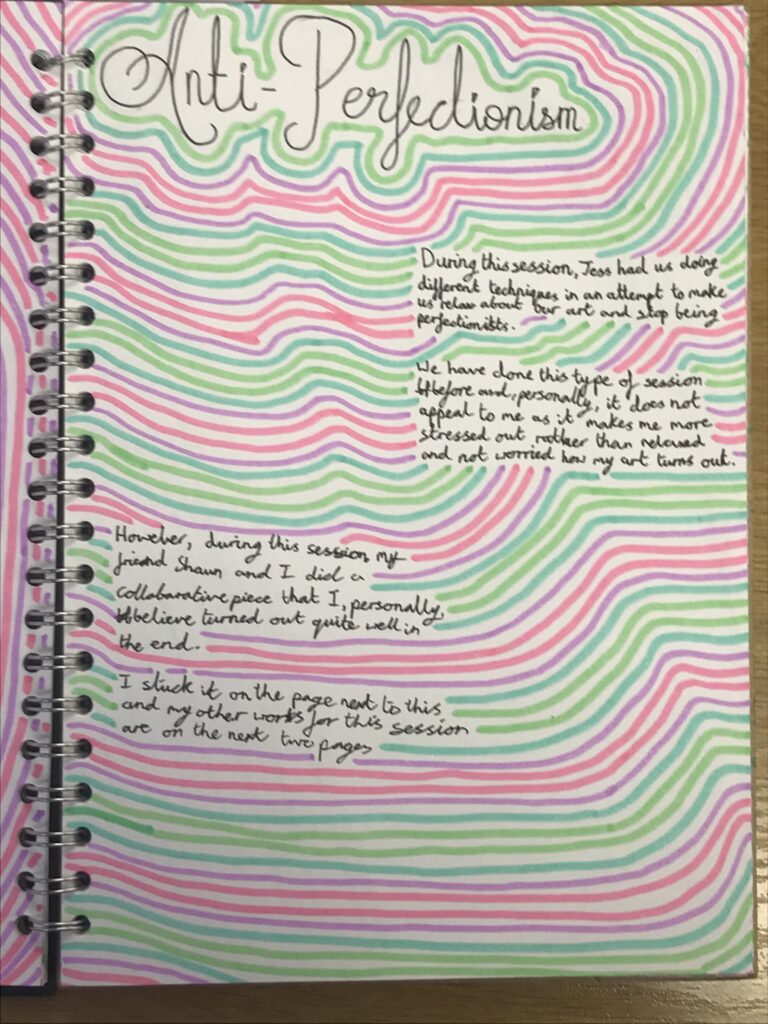 Anti-Perfectionism
During this session, Jess had us doing
different techniques in an attempt to make
us relax about our art and stop being
perfectionists.
We have done this type of session
before and, personally, it does not
appeal to me as it makes me more
stressed out rather than relaxed
and not worried how my art turns out.
However, during this session my
friend Shaun and I did a
collabarative piece that I, personally,
believe turned out quite well in
the end.
I stuck it on the page next to this
and my other works for this session
are on the next two pages